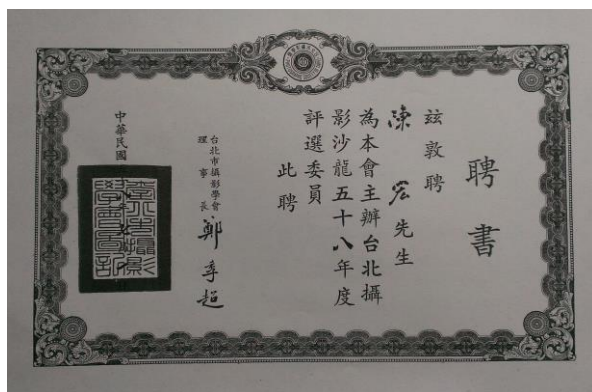 聘書
茲敦聘
陳宏先生
為本會主辦台北攝
影沙龍五十八年度
評選委員
此聘
台北市攝影學會
理事長 鄭季超
中華民國